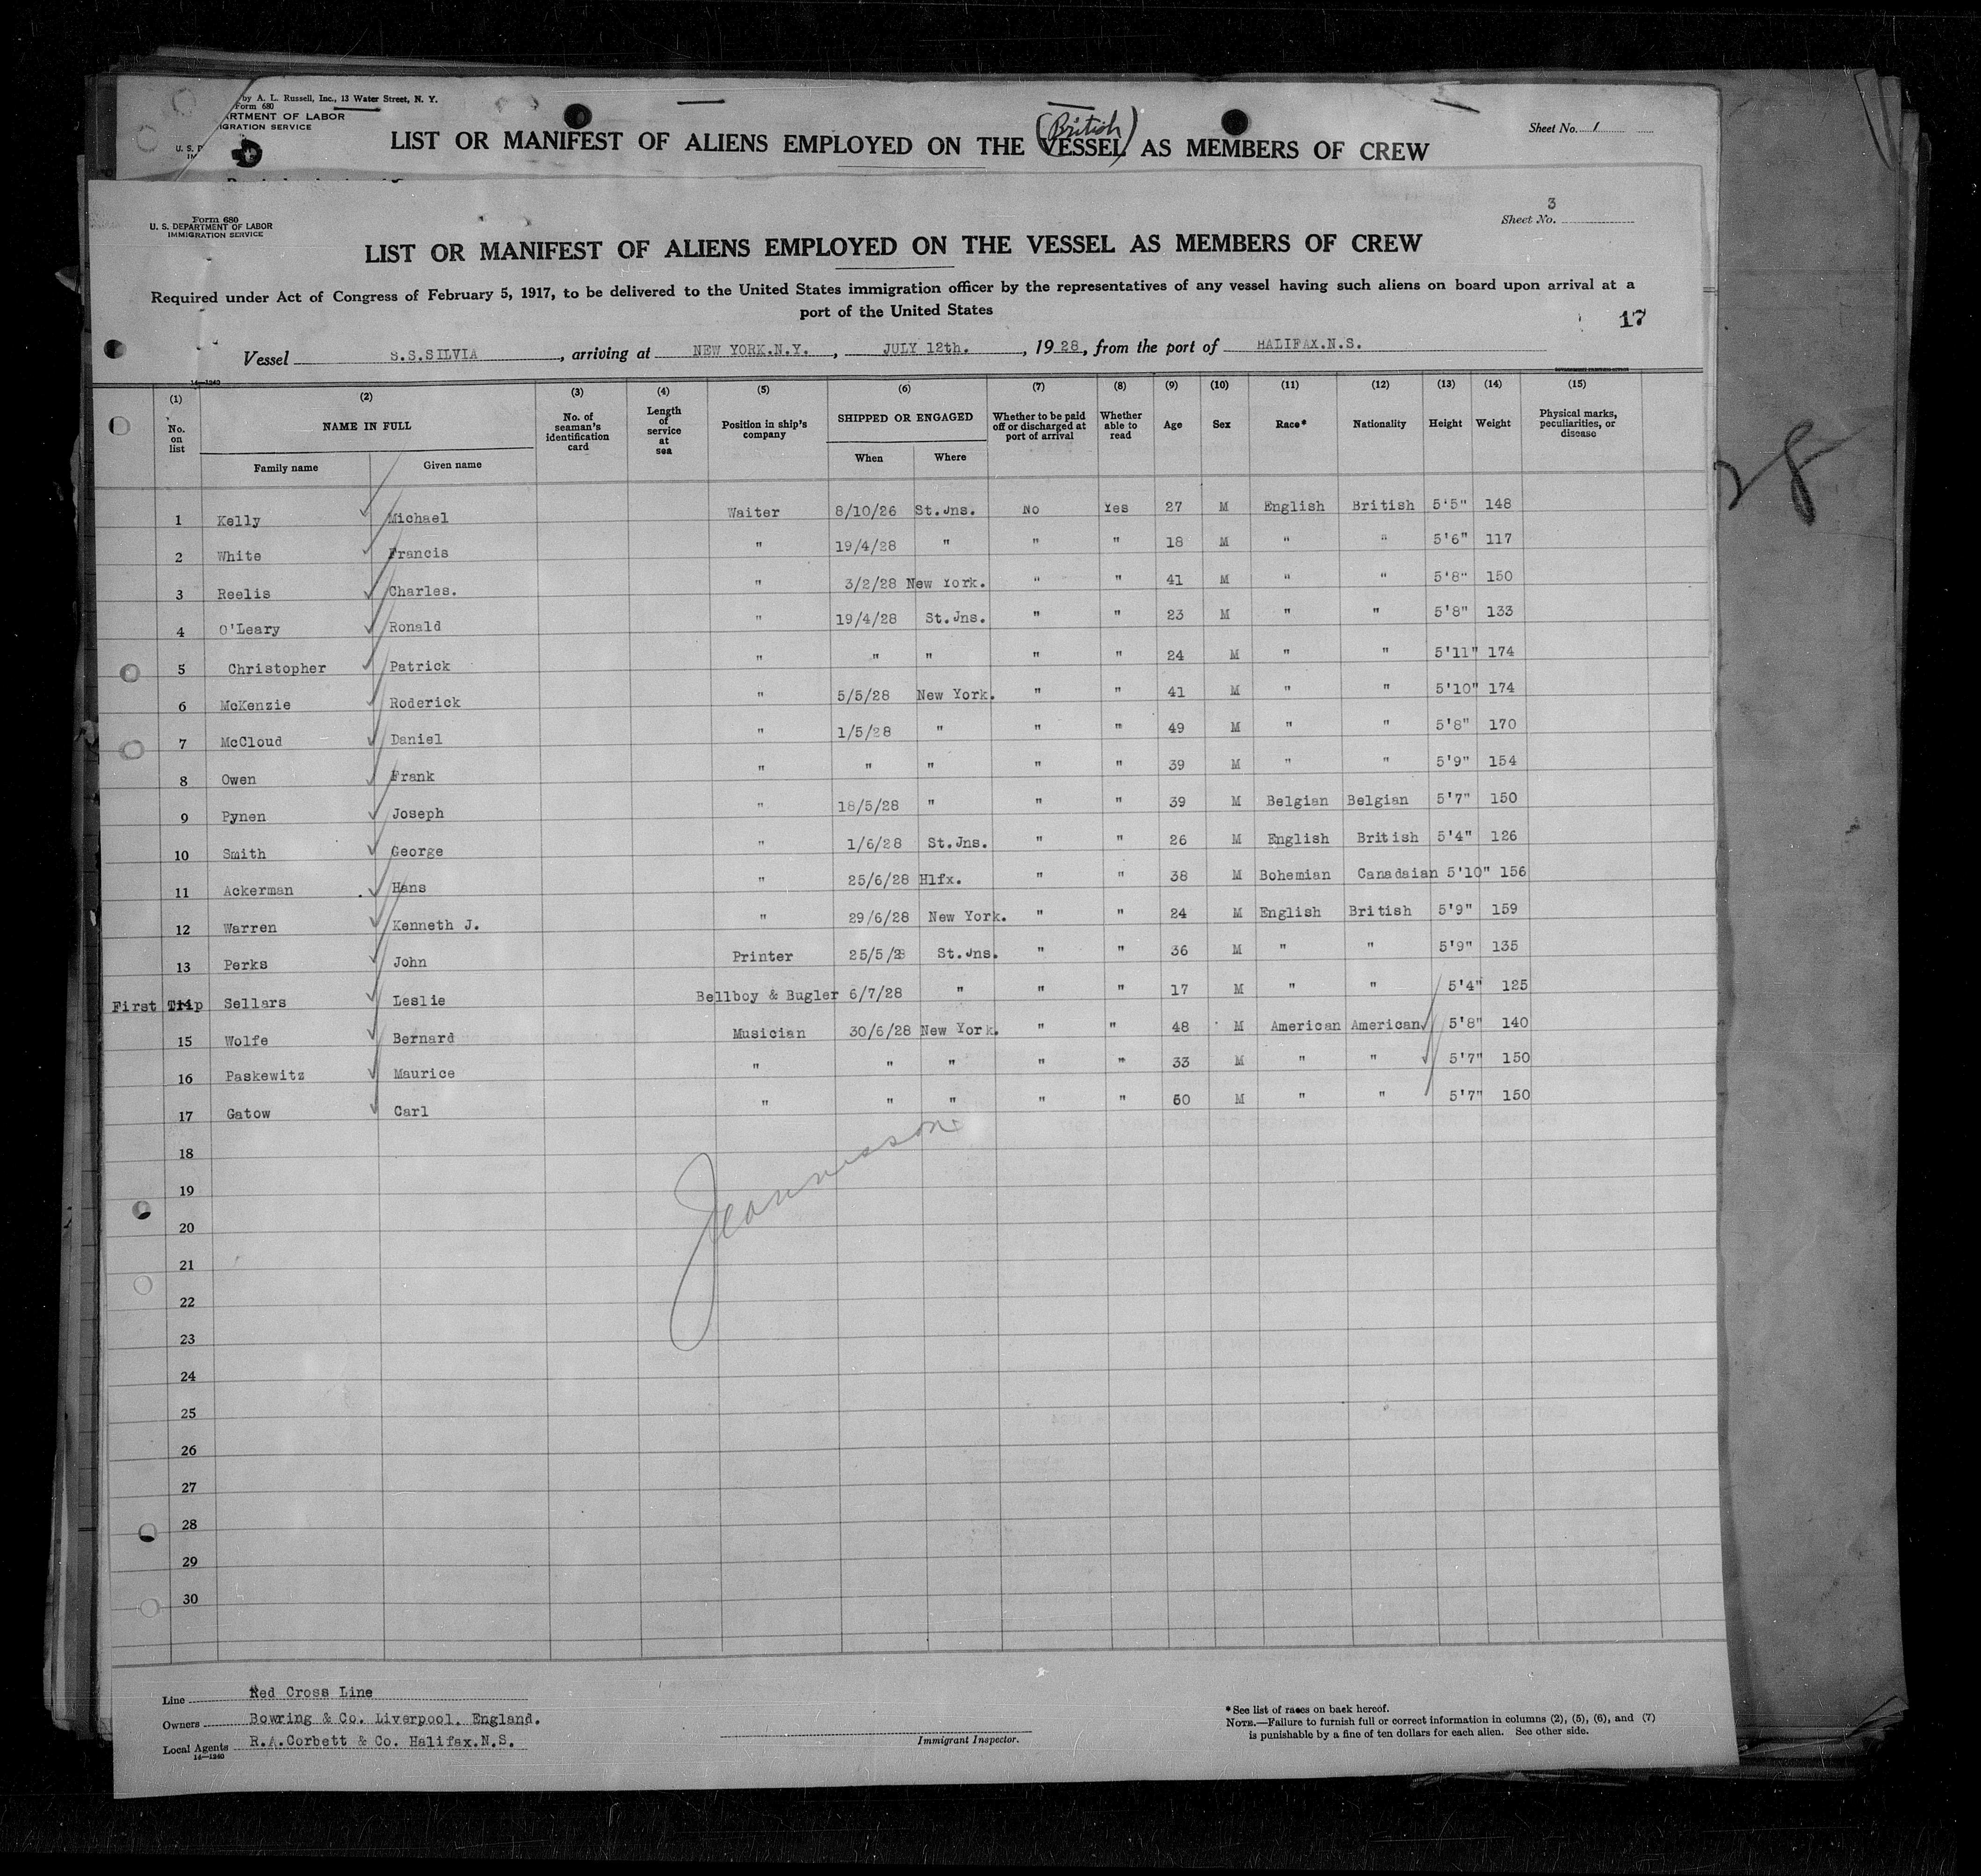 by A. L. Russell, Inc., 13 Water Street, N. Y.
Form 680
ARTMENT OF LABOR
IGRATION SERVICE
U. S. D
IM
LIST OR MANIFEST OF ALIENS EMPLOYED ON THE (British) VESSEL AS MEMBERS OF CREW
Sheet No. 1
Form 680
U. S. DEPARTMENT OF LABOR
IMMIGRATION SERVICE
3
Sheet No.
LIST OR MANIFEST OF ALIENS EMPLOYED ON THE VESSEL AS MEMBERS OF CREW
Required under Act of Congress of February 5, 1917, to be delivered to the United States immigration officer by the representatives of any vessel having such aliens on board upon arrival at a
port of the United States
17
Vessel S.S.SILVIA, arriving at NEW YORK.N.Y., JULY 12th., 1928, from the port of HALIFAX.N.S.
14—1240
(1) (2) (3) (4) (5) (6) (7) (8) (9) (10) (11) (12) (13) (14) (15)
No. on list NAME IN FULL Family name Given name No. of seaman's identification card Length of service at sea Position in ship's company SHIPPED OR ENGAGED When Where Whether to be paid off or discharged at port of arrival Whether able to read Age Sex Race* Nationality Height Weight Physical marks, peculiarities, or disease
1 Kelly Michael Waiter 8/10/26 St.Jns. No Yes 27 M English British 5'5" 148
2 White Francis " 19/4/28 " " " 18 M " " 5'6" 117
3 Reelis Charles. " 3/2/28 New York. " " 41 M " " 5'8" 150
4 O'Leary Ronald " 19/4/28 St.Jns. " " 23 M " " 5'8" 133
5 Christopher Patrick " " " " " 24 M " " 5'11" 174
6 McKenzie Roderick " 5/5/28 New York. " " 41 M " " 5'10" 174
7 McCloud Daniel " 1/5/28 " " " 49 M " " 5'8" 170
8 Owen Frank " " " " " 39 M " " 5'9" 154
9 Pynen Joseph " 18/5/28 " " " 39 M Belgian Belgian 5'7" 150
10 Smith George " 1/6/28 St.Jns. " " 26 M English British 5'4" 126
11 Ackerman Hans " 25/6/28 Hlfx. " " 38 M Bohemian Canadaian 5'10" 156
12 Warren Kenneth J. " 29/6/28 New York. " " 24 M English British 5'9" 159
13 Perks John Printer 25/5/28 St.Jns. " " 36 M " " 5'9" 135
First Trip 14 Sellars Leslie Bellboy & Bugler 6/7/28 " " " 17 M " " 5'4" 125
15 Wolfe Bernard Musician 30/6/28 New York. " " 48 M American American 5'8" 140
16 Paskewitz Maurice " " " " " 33 M " " 5'7" 150
17 Gatow Carl " " " " " 60 M " " 5'7" 150
18
19
20
21
22
23
24
25
26
27
28
29
30
28
Line Red Cross Line
Owners Bowring & Co. Liverpool. England.
Local Agents R.A.Corbett & Co. Halifax.N.S.
14—1240
Immigrant Inspector.
*See list of races on back hereof.
NOTE.—Failure to furnish full or correct information in columns (2), (5), (6), and (7)
is punishable by a fine of ten dollars for each alien. See other side.